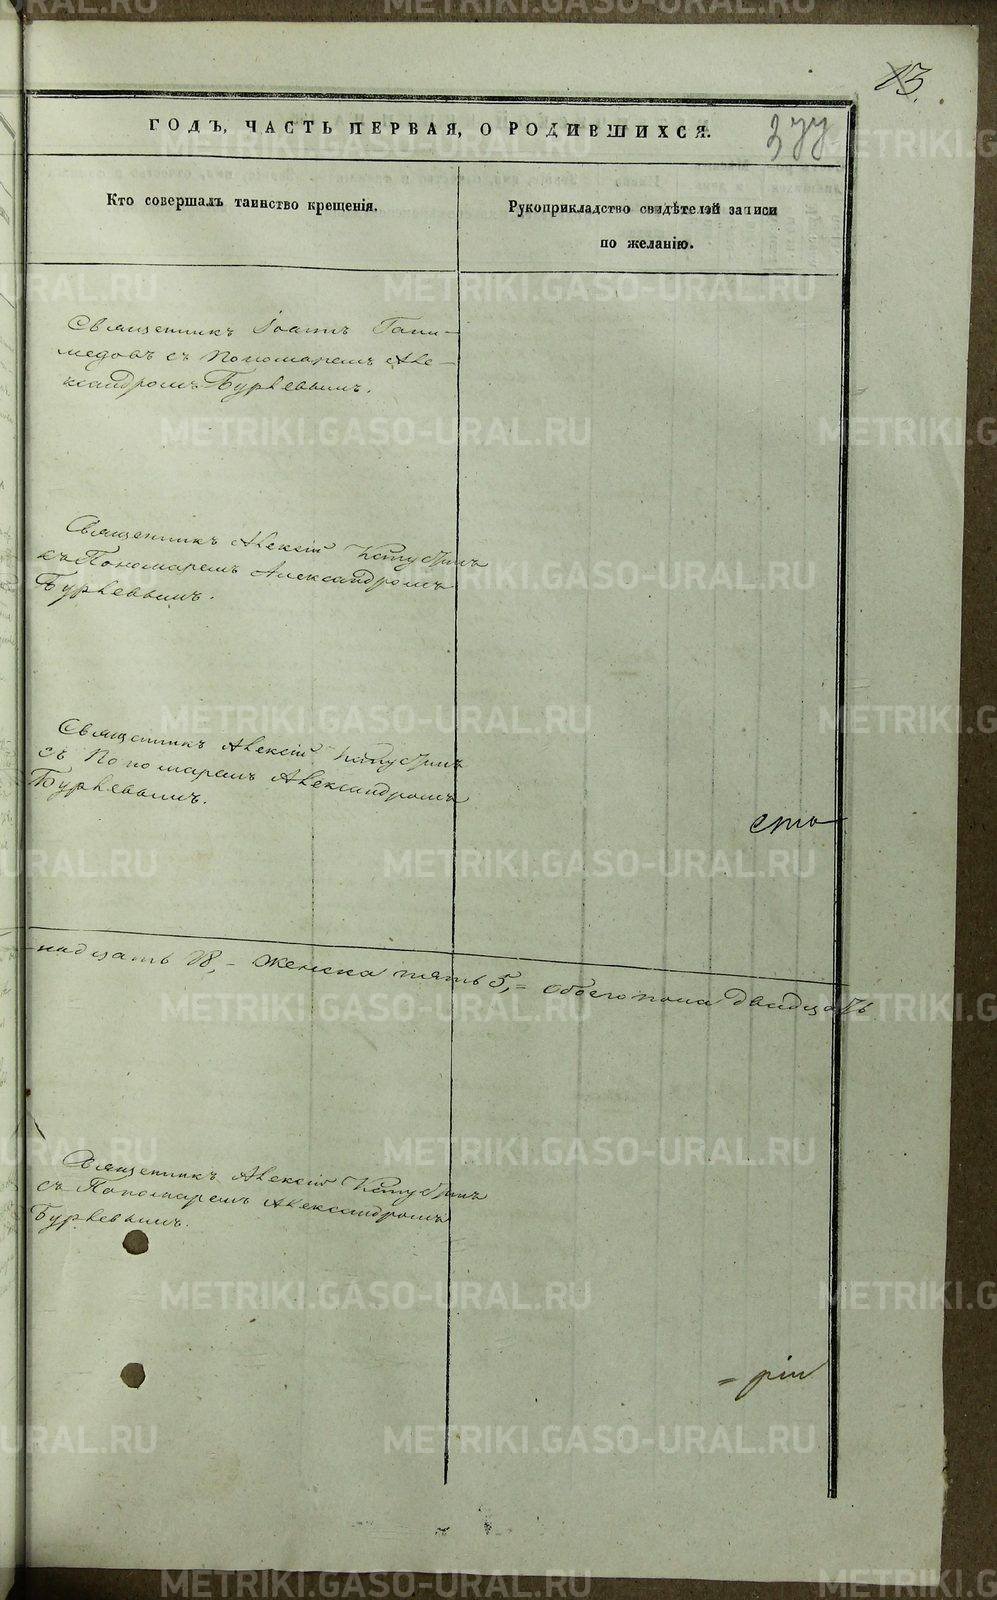 13.
377
ГОДЪ, ЧАСТЬ ПЕРВАЯ, О РОДИВШИХСЯ.
Кто совершалъ таинство крещенія.
Рукоприкладство свидѣтелей записи
по желанію.
Священникъ Іоаннъ Гани-
медовъ съ Пономаремъ Але-
ксандромъ Бурлевымъ.
Священникъ Алексій
съ Пономаремъ Александромъ
Бурлевымъ.
Священникъ Алексій
съ Пономаремъ Александромъ
Бурлевымъ.
сто
надцать 18, - женска пять 5, = обоего пола двадцать
Священникъ Алексій
съ Пономаремъ Александромъ
Бурлевымъ.
= рів
METRIKI.GASO-URAL.RU